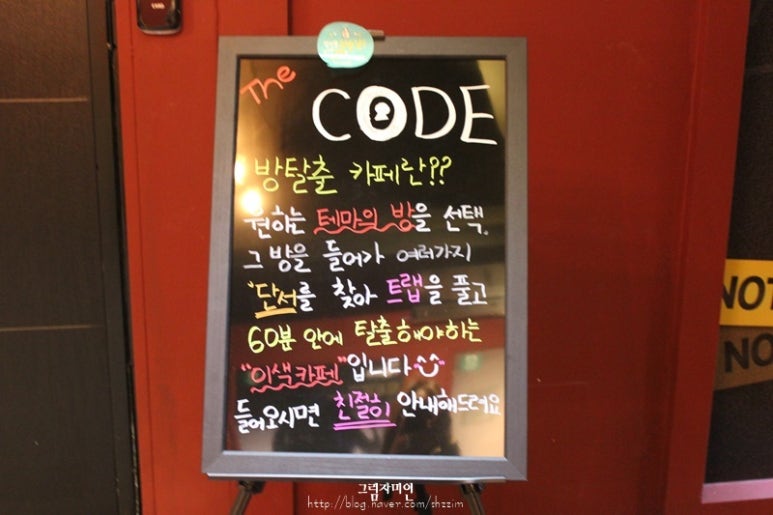 The
CODE
방탈출 카페란??
원하는 테마의 방을 선택.
그 방을 들어가 여러가지
"단서를 찾아 트랩을 풀고
60분 안에 탈출해야하는
"이색카페"입니다
들어오시면 친절히 안내해드려요
NOT
NO
그림자미인
http://blog.naver.com/shzzim